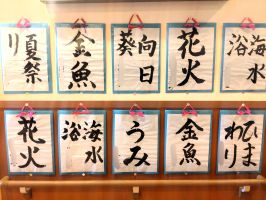 海水
浴
花火
向日
葵
金魚
夏祭
り
ひま
わり
金魚
うみ
海水
浴
花火